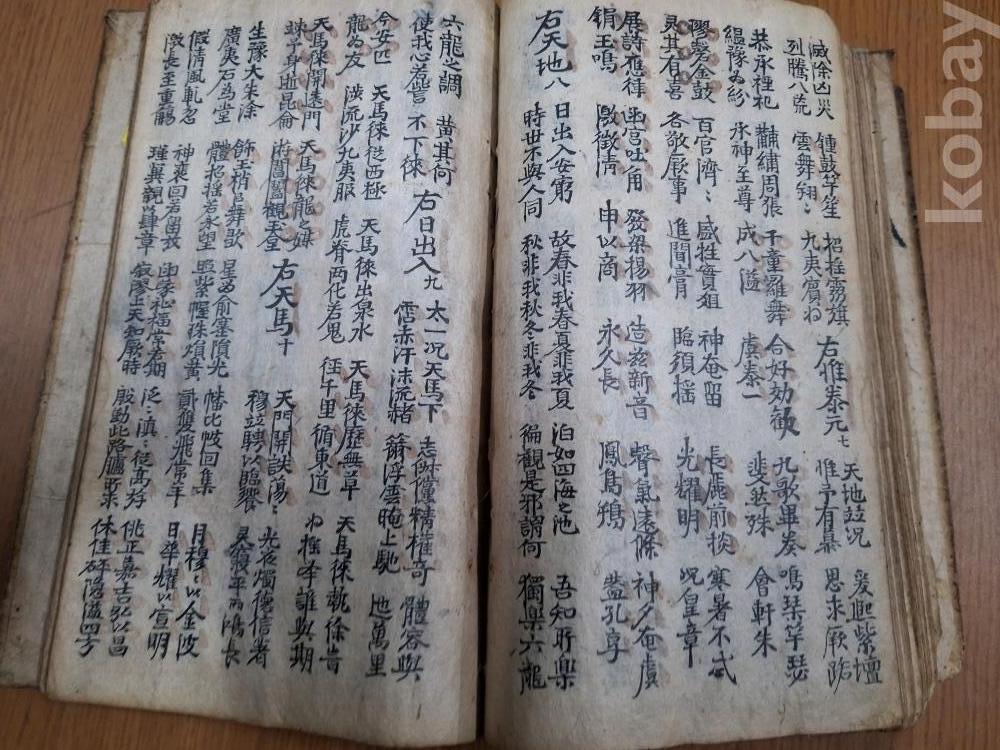 威除凶災
列騰八荒
鍾鼓竽笙
雲舞翔〻
招搖靈旗
九夷賓将
右惟泰元七
天地並况
惟予有慕
爰熙紫壇
思求厥路
恭承禋祀
縕豫為紛
黼繡周張
承神至尊
千童羅舞
成八溢
合好効歡
虞泰一
九歌畢奏
斐然殊
鳴琴竽瑟
會軒朱
璆磬金鼓
灵其有喜
百官濟〻
各敬厥事
盛牲實俎
進聞膏
神奄留
臨須搖
長麗前掞
光耀明
寒暑不忒
况皇章
展詩應律
鋗玉鳴
函宮吐角
激徵清
發梁揚羽
申以商
造茲新音
永久長
聲氣遠條
鳳鳥鴹
神夕奄虞
蓋孔享
右天地八
日出入安窮
時世不與人同
故春非我春夏非我夏
秋非我秋冬非我冬
泊如四海之池
徧觀是邪謂何
吾知所樂
獨樂六龍
六龍之調
使我心若訾
黃其何
不下徠
右日出入九
太一况天馬下
霑赤汗沫流赭
志俶儻精權奇
籋浮雲晻上馳
體容與
迣萬里
今安匹
龍為友
天馬徠從西極
涉流沙九夷服
天馬徠出泉水
虎脊两化若鬼
天馬徠歷無草
徑千里循東道
天馬徠執徐旹
将搖举誰與期
天馬徠開遠門
竦予身逝昆侖
天馬徠龍之媒
游閶闔觀玉臺
右天馬十
天門開詄蕩〻
穆並騁以臨饗
光夜燭德信著
灵寖平而鴻長
生豫大朱涂
廣夷石為堂
飾玉梢以舞歌
體招搖若永望
星留俞塞隕光
照紫幄珠熉黃
幡比翄回集
貳雙飛常羊
月穆〻以金波
日華耀以宣明
假清風軋忽
激長至重觴
神裴回若留放
殣冀親以肆章
函蒙祉福常若期
寂漻上天知厥時
泛〻滇〻從高斿
殷勤此路臚所求
佻正嘉吉弘以昌
休佳砰隱溢四方
kobay